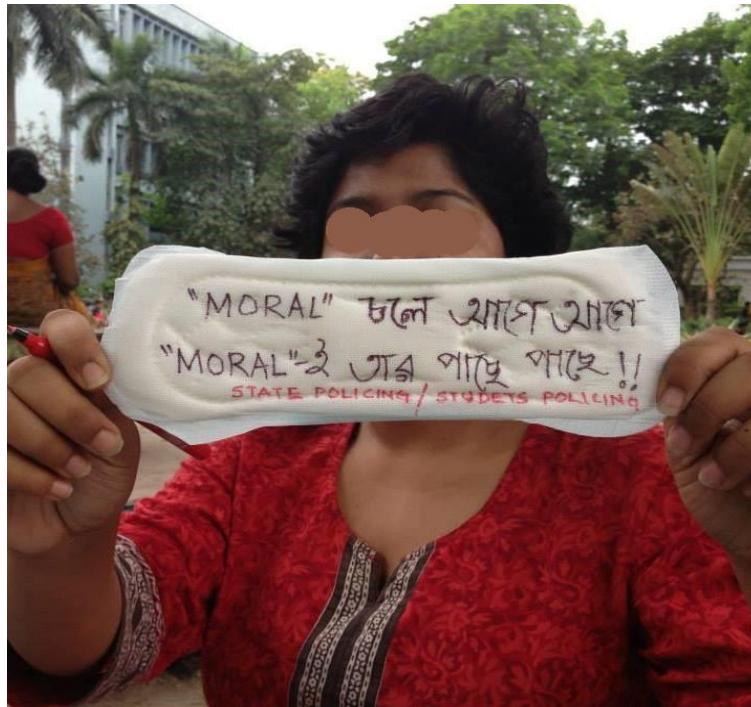 "MORAL" চলে আগে আগে
"MORAL"-ই তার পাছে পাছে!!
STATE POLICING / STUDETS POLICING